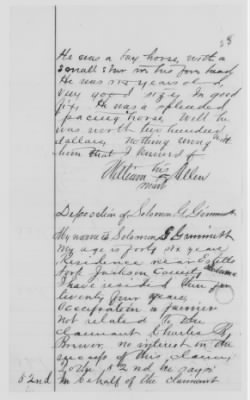 He was a bay horse, with a
small star in his fore head
He was six years old,
very good size, in good
fix, He was a splended
pacing horse Well he
was worth two hundred
dollars nothing wrong with
him that I knowed of
William his Allen
mark
Deposition of Solomon G Grimmett
My name is Solomon G Grimmett
My age is forty six years
Residence near
Jackson County Alabama
I have resided there for
twenty four years,
Occupation a farmer
not related to the
claimant Charles B
Brewer, no interest in the
success of this claim,
To the 82nd he says
82nd In behalf of the claimant